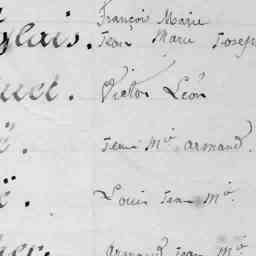 François Marie
glais. Jean Marie Joseph
uet. Victor Léon
Jean Mie Armand.
Louis Jean Mie
her. Armand Jean Mie